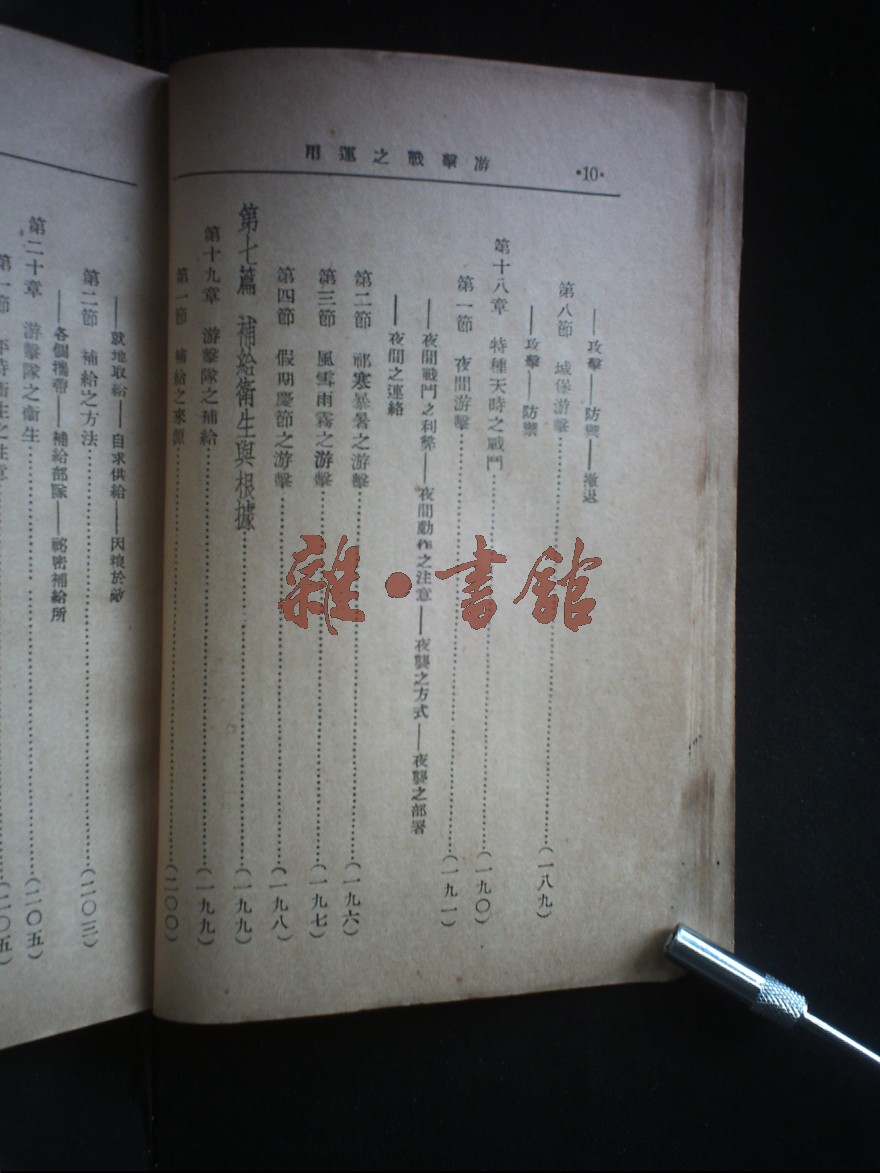 游擊戰之運用
•10•
——攻擊——防禦——撤退
第八節 城堡游擊……(一八九)
——攻擊——防禦
第十八章 特種天時之戰鬥……(一九〇)
第一節 夜間游擊……(一九一)
——夜間戰鬥之利弊——夜間動作之注意——夜襲之方式——夜襲之部署
——夜間之連絡
第二節 祁寒暴暑之游擊……(一九六)
第三節 風雪雨霧之游擊……(一九七)
第四節 假期慶節之游擊……(一九八)
第七篇 補給衛生與根據……(一九九)
第十九章 游擊隊之補給……(一九九)
第一節 補給之來源……(二〇〇)
——就地取給——自求供給——因糧於敵
第二節 補給之方法……(二〇三)
——各個攜帶——補給部隊——祕密補給所
第二十章 游擊隊之衛生……(二〇五)
第一節 平時衛生之注意……(二〇五)
雜•書館